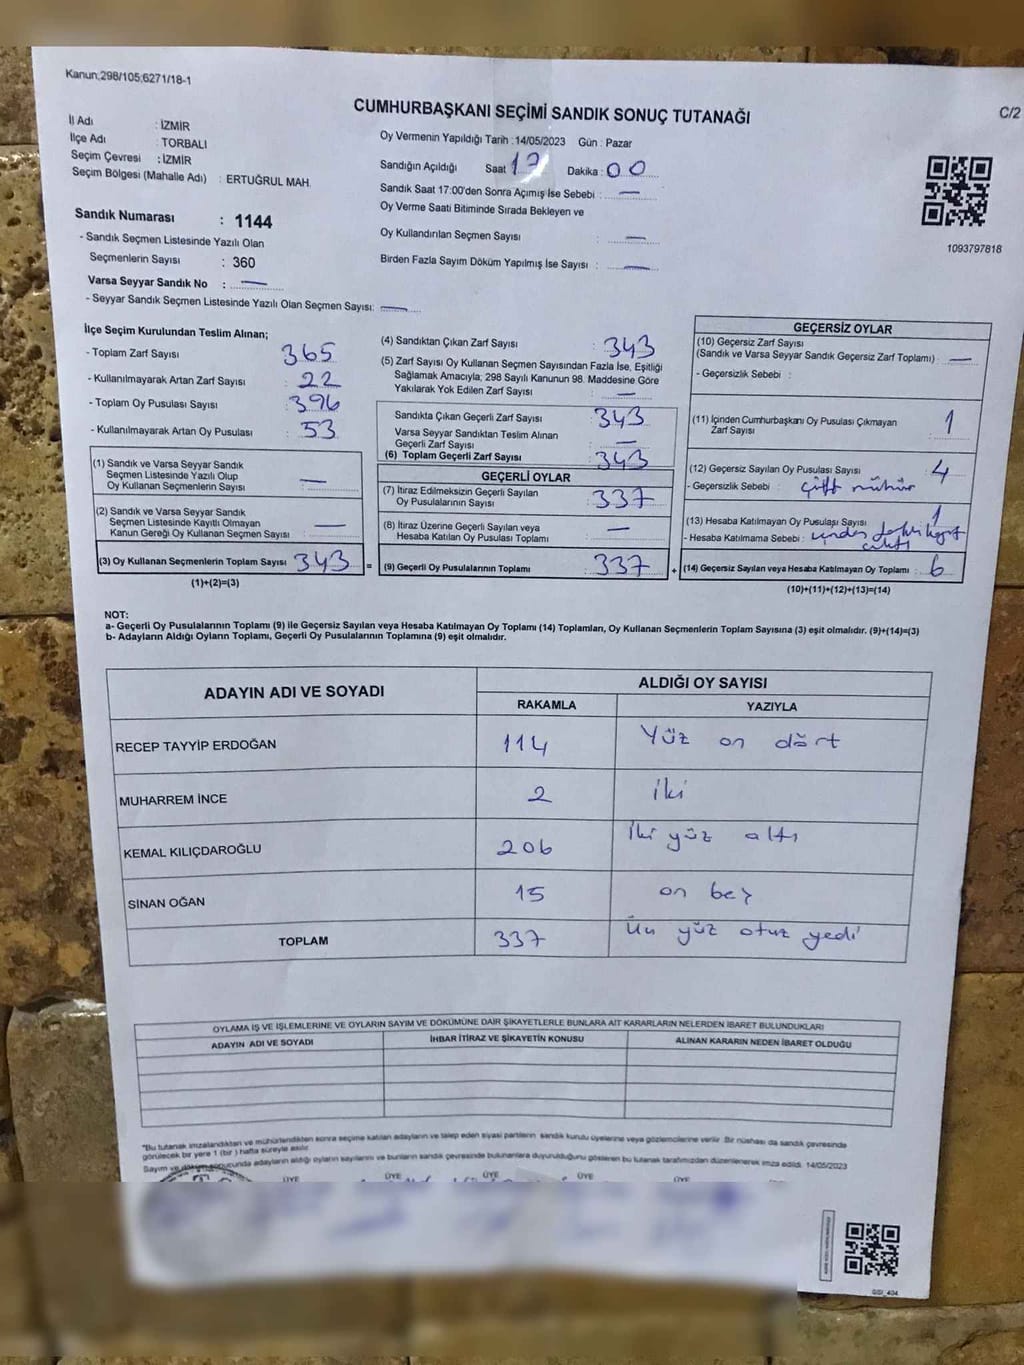 Kanun;298/105;6271/18-1
CUMHURBAŞKANI SEÇİMİ SANDIK SONUÇ TUTANAĞI
C/2
İl Adı : İZMİR
İlçe Adı : TORBALI
Seçim Çevresi : İZMİR
Seçim Bölgesi (Mahalle Adı) : ERTUĞRUL MAH.
Sandık Numarası : 1144
- Sandık Seçmen Listesinde Yazılı Olan
Seçmenlerin Sayısı : 360
Varsa Seyyar Sandık No : —
- Seyyar Sandık Seçmen Listesinde Yazılı Olan Seçmen Sayısı: —
Oy Vermenin Yapıldığı Tarih :14/05/2023 Gün : Pazar
Sandığın Açıldığı Saat 17 Dakika : 00
Sandık Saat 17:00'den Sonra Açımış İse Sebebi : —
Oy Verme Saati Bitiminde Sırada Bekleyen ve
Oy Kullandırılan Seçmen Sayısı : —
Birden Fazla Sayım Döküm Yapılmış İse Sayısı : —
1093797818
İlçe Seçim Kurulundan Teslim Alınan;
- Toplam Zarf Sayısı : 365
- Kullanılmayarak Artan Zarf Sayısı : 22
- Toplam Oy Pusulası Sayısı : 396
- Kullanılmayarak Artan Oy Pusulası : 53
(1) Sandık ve Varsa Seyyar Sandık
Seçmen Listesinde Yazılı Olup
Oy Kullanan Seçmenlerin Sayısı : —
(2) Sandık ve Varsa Seyyar Sandık
Seçmen Listesinde Kayıtlı Olmayan
Kanun Gereği Oy Kullanan Seçmen Sayısı : —
(3) Oy Kullanan Seçmenlerin Toplam Sayısı : 343 =
(1)+(2)=(3)
(4) Sandıktan Çıkan Zarf Sayısı : 343
(5) Zarf Sayısı Oy Kullanan Seçmen Sayısından Fazla İse, Eşitliği
Sağlamak Amacıyla; 298 Sayılı Kanunun 98. Maddesine Göre
Yakılarak Yok Edilen Zarf Sayısı : —
Sandıkta Çıkan Geçerli Zarf Sayısı : 343
Varsa Seyyar Sandıktan Teslim Alınan
Geçerli Zarf Sayısı : —
(6) Toplam Geçerli Zarf Sayısı : 343
GEÇERLİ OYLAR
(7) İtiraz Edilmeksizin Geçerli Sayılan
Oy Pusulalarının Sayısı : 337
(8) İtiraz Üzerine Geçerli Sayılan veya
Hesaba Katılan Oy Pusulası Toplamı : —
(9) Geçerli Oy Pusulalarının Toplamı : 337 +
GEÇERSİZ OYLAR
(10) Geçersiz Zarf Sayısı
(Sandık ve Varsa Seyyar Sandık Geçersiz Zarf Toplamı) : —
- Geçersizlik Sebebi :
(11) İçinden Cumhurbaşkanı Oy Pusulası Çıkmayan
Zarf Sayısı : 1
(12) Geçersiz Sayılan Oy Pusulası Sayısı : 4
- Geçersizlik Sebebi : Çift mühür
(13) Hesaba Katılmayan Oy Pusulası Sayısı : 1
- Hesaba Katılmama Sebebi :
çıktı
(14) Geçersiz Sayılan veya Hesaba Katılmayan Oy Toplamı : 6
(10)+(11)+(12)+(13)=(14)
NOT:
a- Geçerli Oy Pusulalarının Toplamı (9) ile Geçersiz Sayılan veya Hesaba Katılmayan Oy Toplamı (14) Toplamları, Oy Kullanan Seçmenlerin Toplam Sayısına (3) eşit olmalıdır. (9)+(14)=(3)
b- Adayların Aldığı Oyların Toplamı, Geçerli Oy Pusulalarının Toplamına (9) eşit olmalıdır.
ADAYIN ADI VE SOYADI ALDIĞI OY SAYISI
RAKAMLA YAZIYLA
RECEP TAYYİP ERDOĞAN 114 Yüz on dört
MUHARREM İNCE 2 İki
KEMAL KILIÇDAROĞLU 206 İki yüz altı
SİNAN OĞAN 15 on beş
TOPLAM 337 Üç yüz otuz yedi
OYLAMA İŞ VE İŞLEMLERİNE VE OYLARIN SAYIM VE DÖKÜMÜNE DAİR ŞİKAYETLERLE BUNLARA AİT KARARLARIN NELERDEN İBARET BULUNDUKLARI
ADAYIN ADI VE SOYADI İHBAR İTİRAZ VE ŞİKAYETİN KONUSU ALINAN KARARIN NEDEN İBARET OLDUĞU
"Bu tutanak imzalandıktan ve mühürlendikten sonra seçime katılan adayların ve talep eden siyasi partilerin sandık kurulu üyelerine veya gözlemcilerine verilir. Bir nüshası da sandık çevresinde
görülecek bir yere 1 (bir ) hafta süreyle asılır.
Sayım ve döküm sonucunda adayların aldığı oyların sayılarını ve bunların sandık çevresinde bulunanlara duyurulduğunu gösteren bu tutanak tarafımızdan düzenlenerek imza edildi. 14/05/2023
ÜYE ÜYE ÜYE ÜYE ÜYE